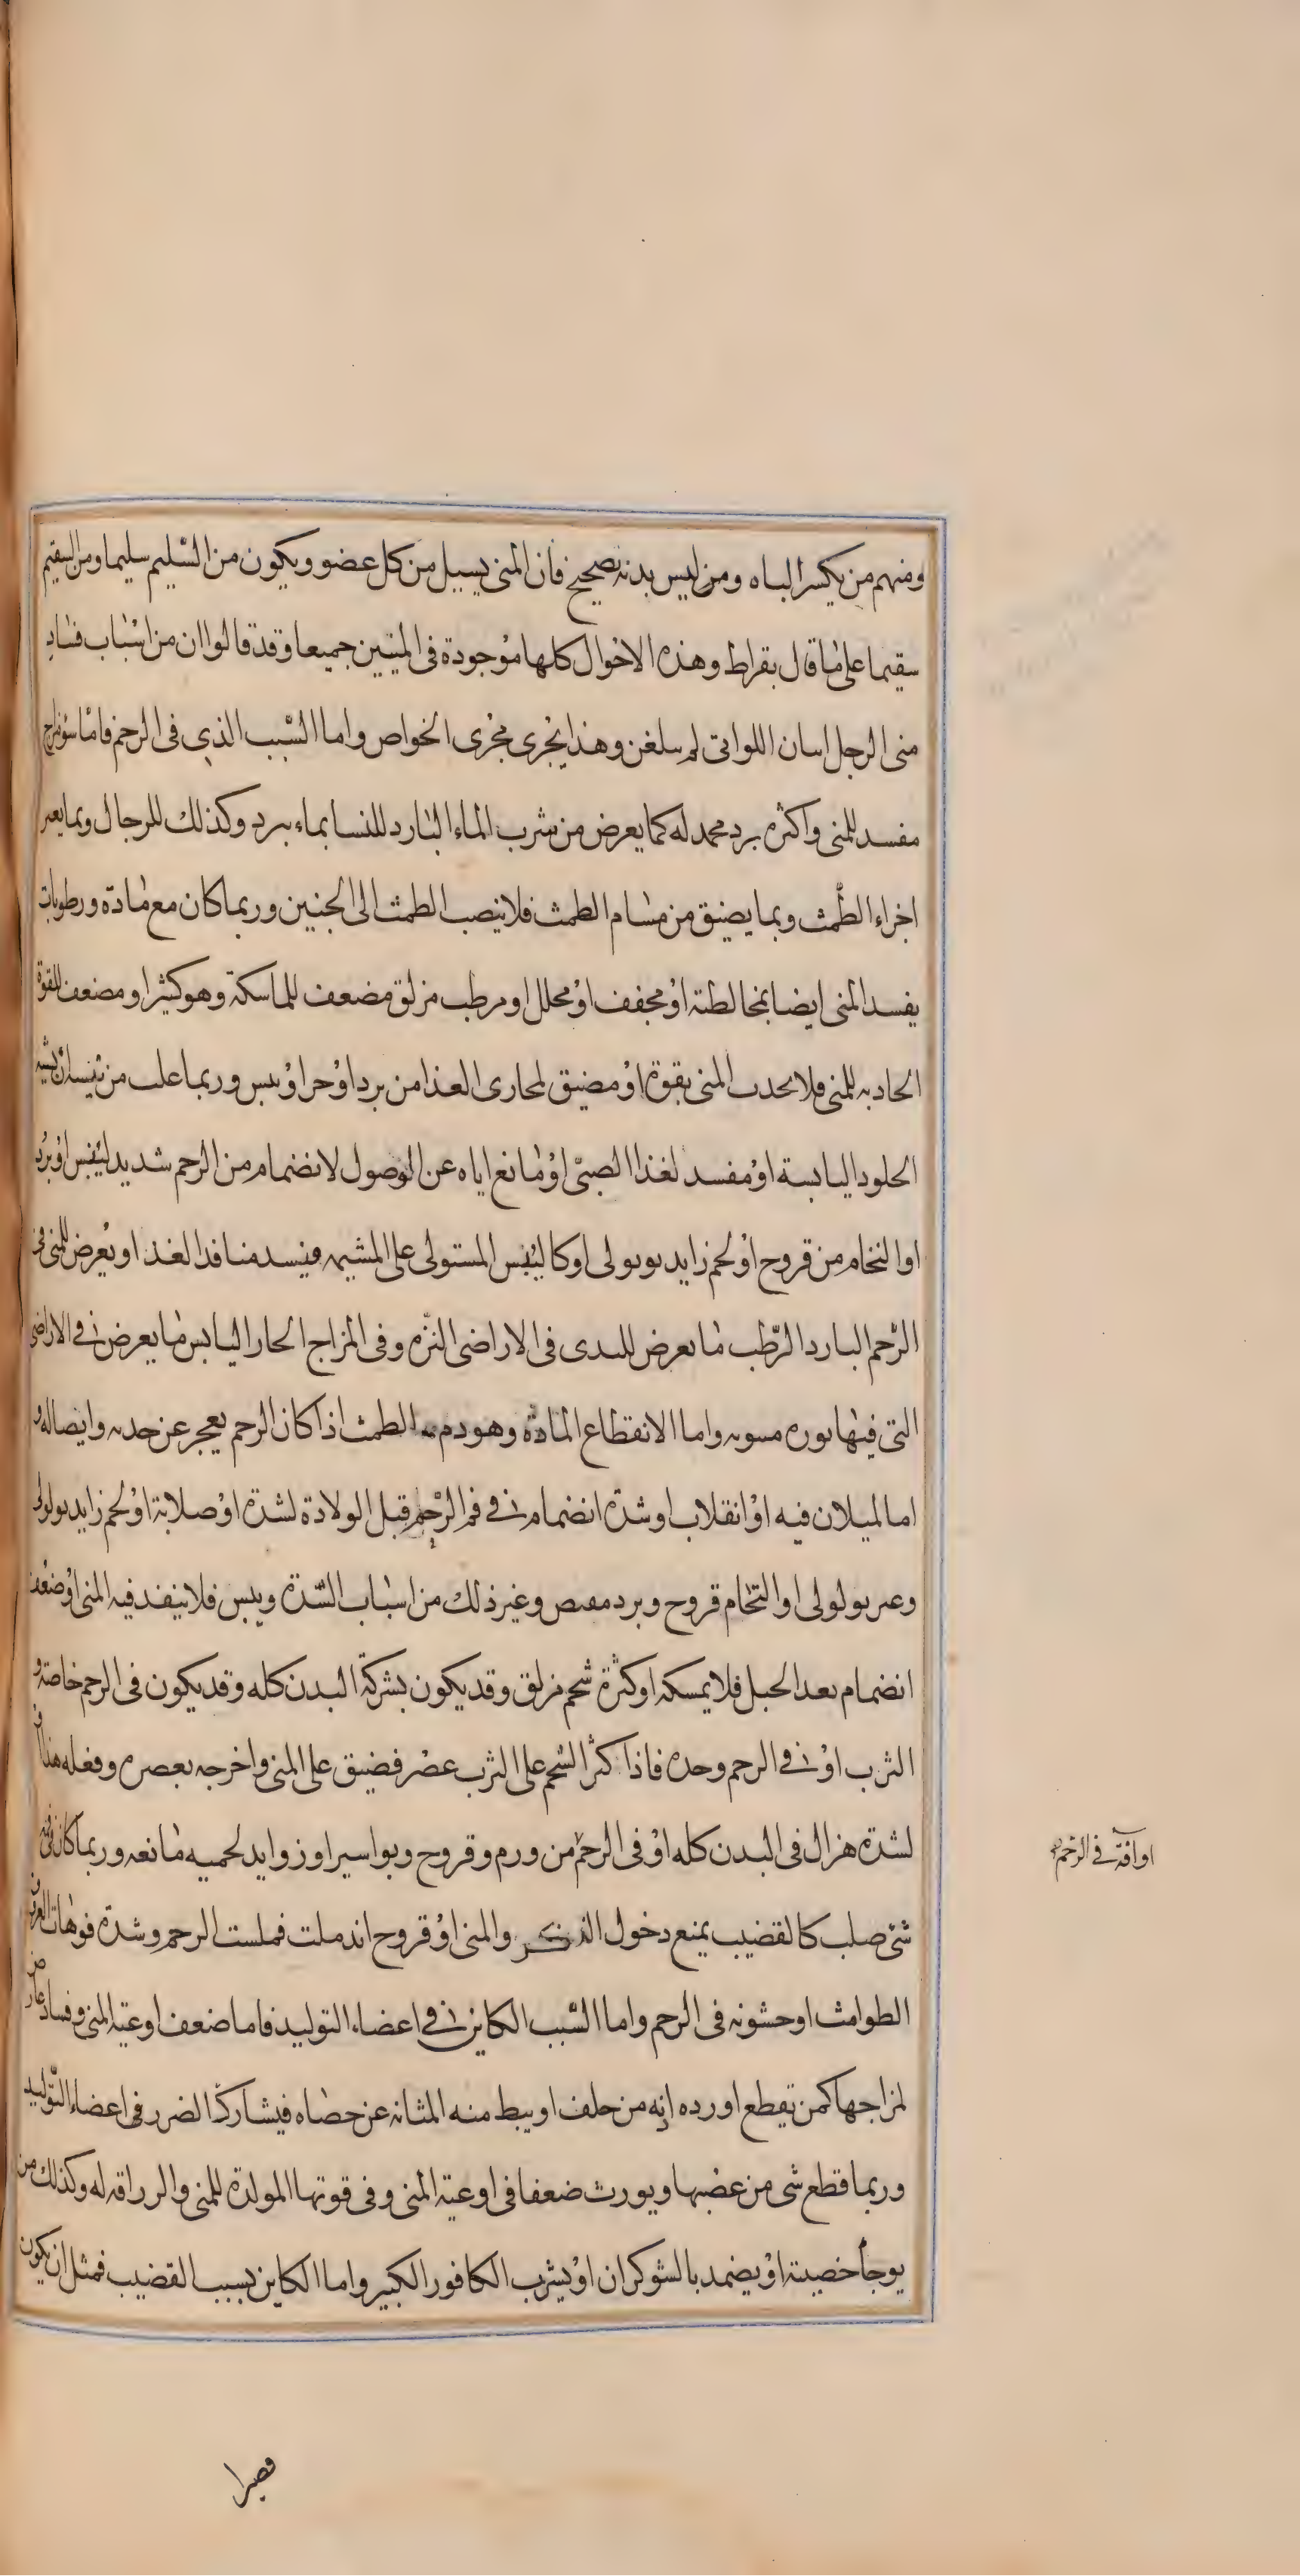 ومنهم من يكسر الباه ومن ليس بدنه بصحيح فان المنى يسيل من كل عضو ويكون من السليم سليما ومن السقيم
سقيما على ما قال بقراط وهذه الاحوال كلها موجودة فى المنيين جميعا وقد قالوا ان من اسباب فساد
منى الرجل اسان اللواتى لم سلغن وهذا يجرى مجرى الخواص واما السبب الذى فى الرحم فاما سو مزاج
مفسد للمنى واكثره برد مجمد له كما يعرض من شرب الماء البارد للنسا بماء يبرد وكذلك للرجال وبما يغير
اخراء الطمث وبما يضيق من مسام الطمث فلا ينصب الطمث الى الجنين وربما كان مع مادة ورطوبات
يفسد المنى ايضا بمخالطته او مجفف او محلل او مرطب مزلق مضعف للماسكة وهو كثير او مضعف للقوة
الحادبه للمنى فلا محدب المنى بقوة او مضيق لمحارى الغذا من برد او حر او يبس وربما علب من
الحلود اليابسة او مفسد لغذا الصبى او مانع اياه عن الوصول لانضمام من الرحم شديد ليبس او برد
او التحام من قروح او لحم زايد بوبولى اوكا ليبس المستولى على المشيمه فيسد منافذ الغذا او يعرض للمنى فى
الرحم البارد الرطب ما يعرض للبدى فى الاراضى النزه وفى المزاج الحار اليابس ما يعرض فى الاراضى
التى فيها نوره مسوبه واما الانقطاع المادة وهو دم الطمث اذا كان الرحم يعجز عن جدبه وايصاله و
اما لميلان فيه او انقلاب او شدة انضمام فى فم الرحم قبل الولادة لشدة او صلابة او لحم زايد بولولى
وعىر بولولى او التحام قروح وبرد مقبض وغير ذلك من اسباب السدة ويبس فلا ينفذ فيه المنى او ضعف
انضمام بعد الحبل فلا يمسكه او كثرة شحم مزلق وقد يكون بشركة البدن كله وقد يكون فى الرحم خاصة و
الثرب او فى الرحم وحده فاذا كثر الشحم على الثرب عصر فضيق على المنى واخرجه بعصره وفعله هذا او
لشدة هزال فى البدن كله او فى الرحم من ورم وقروح وبواسير او زوايد لحميه مانعه وربما كان فى فمه
شئ صلب كالقضيب يمنع دخول الذكر والمنى او قروح اندملت فملست الرحم وشدة فوهات العروق
الطوامث او حشونه فى الرحم واما السبب الكاين فى اعضاء التوليد فاما ضعف اوعية المنى وفساد عارض
لمزاجها كمن يقطع اورده اذنه من خلف او يبط منه المثانه عن حصاه فيشارك الضرر فى اعضاء التوليد
وربما قطع شى من عضبها ويورث ضعفا فى اوعية المنى وفى قوتها المولدة للمنى والرراقه له وكذلك من
يوجأ خصيته او يضمد بالشوكران او يشرب الكافور الكبير واما الكاين بسبب القضيب فمثل ان يكون
او آفة فى الرحم
قصيرا